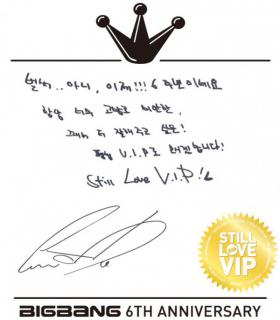 벌써.. 아니, 이제!!! 6주년이네요
항상 너무 고맙고 미안한,
그래서 더 잘해주고 싶은!
평생 V.I.P로 모시겠습니다!
Still Love V.I.P!
STILL
LOVE
VIP
BIGBANG 6TH ANNIVERSARY